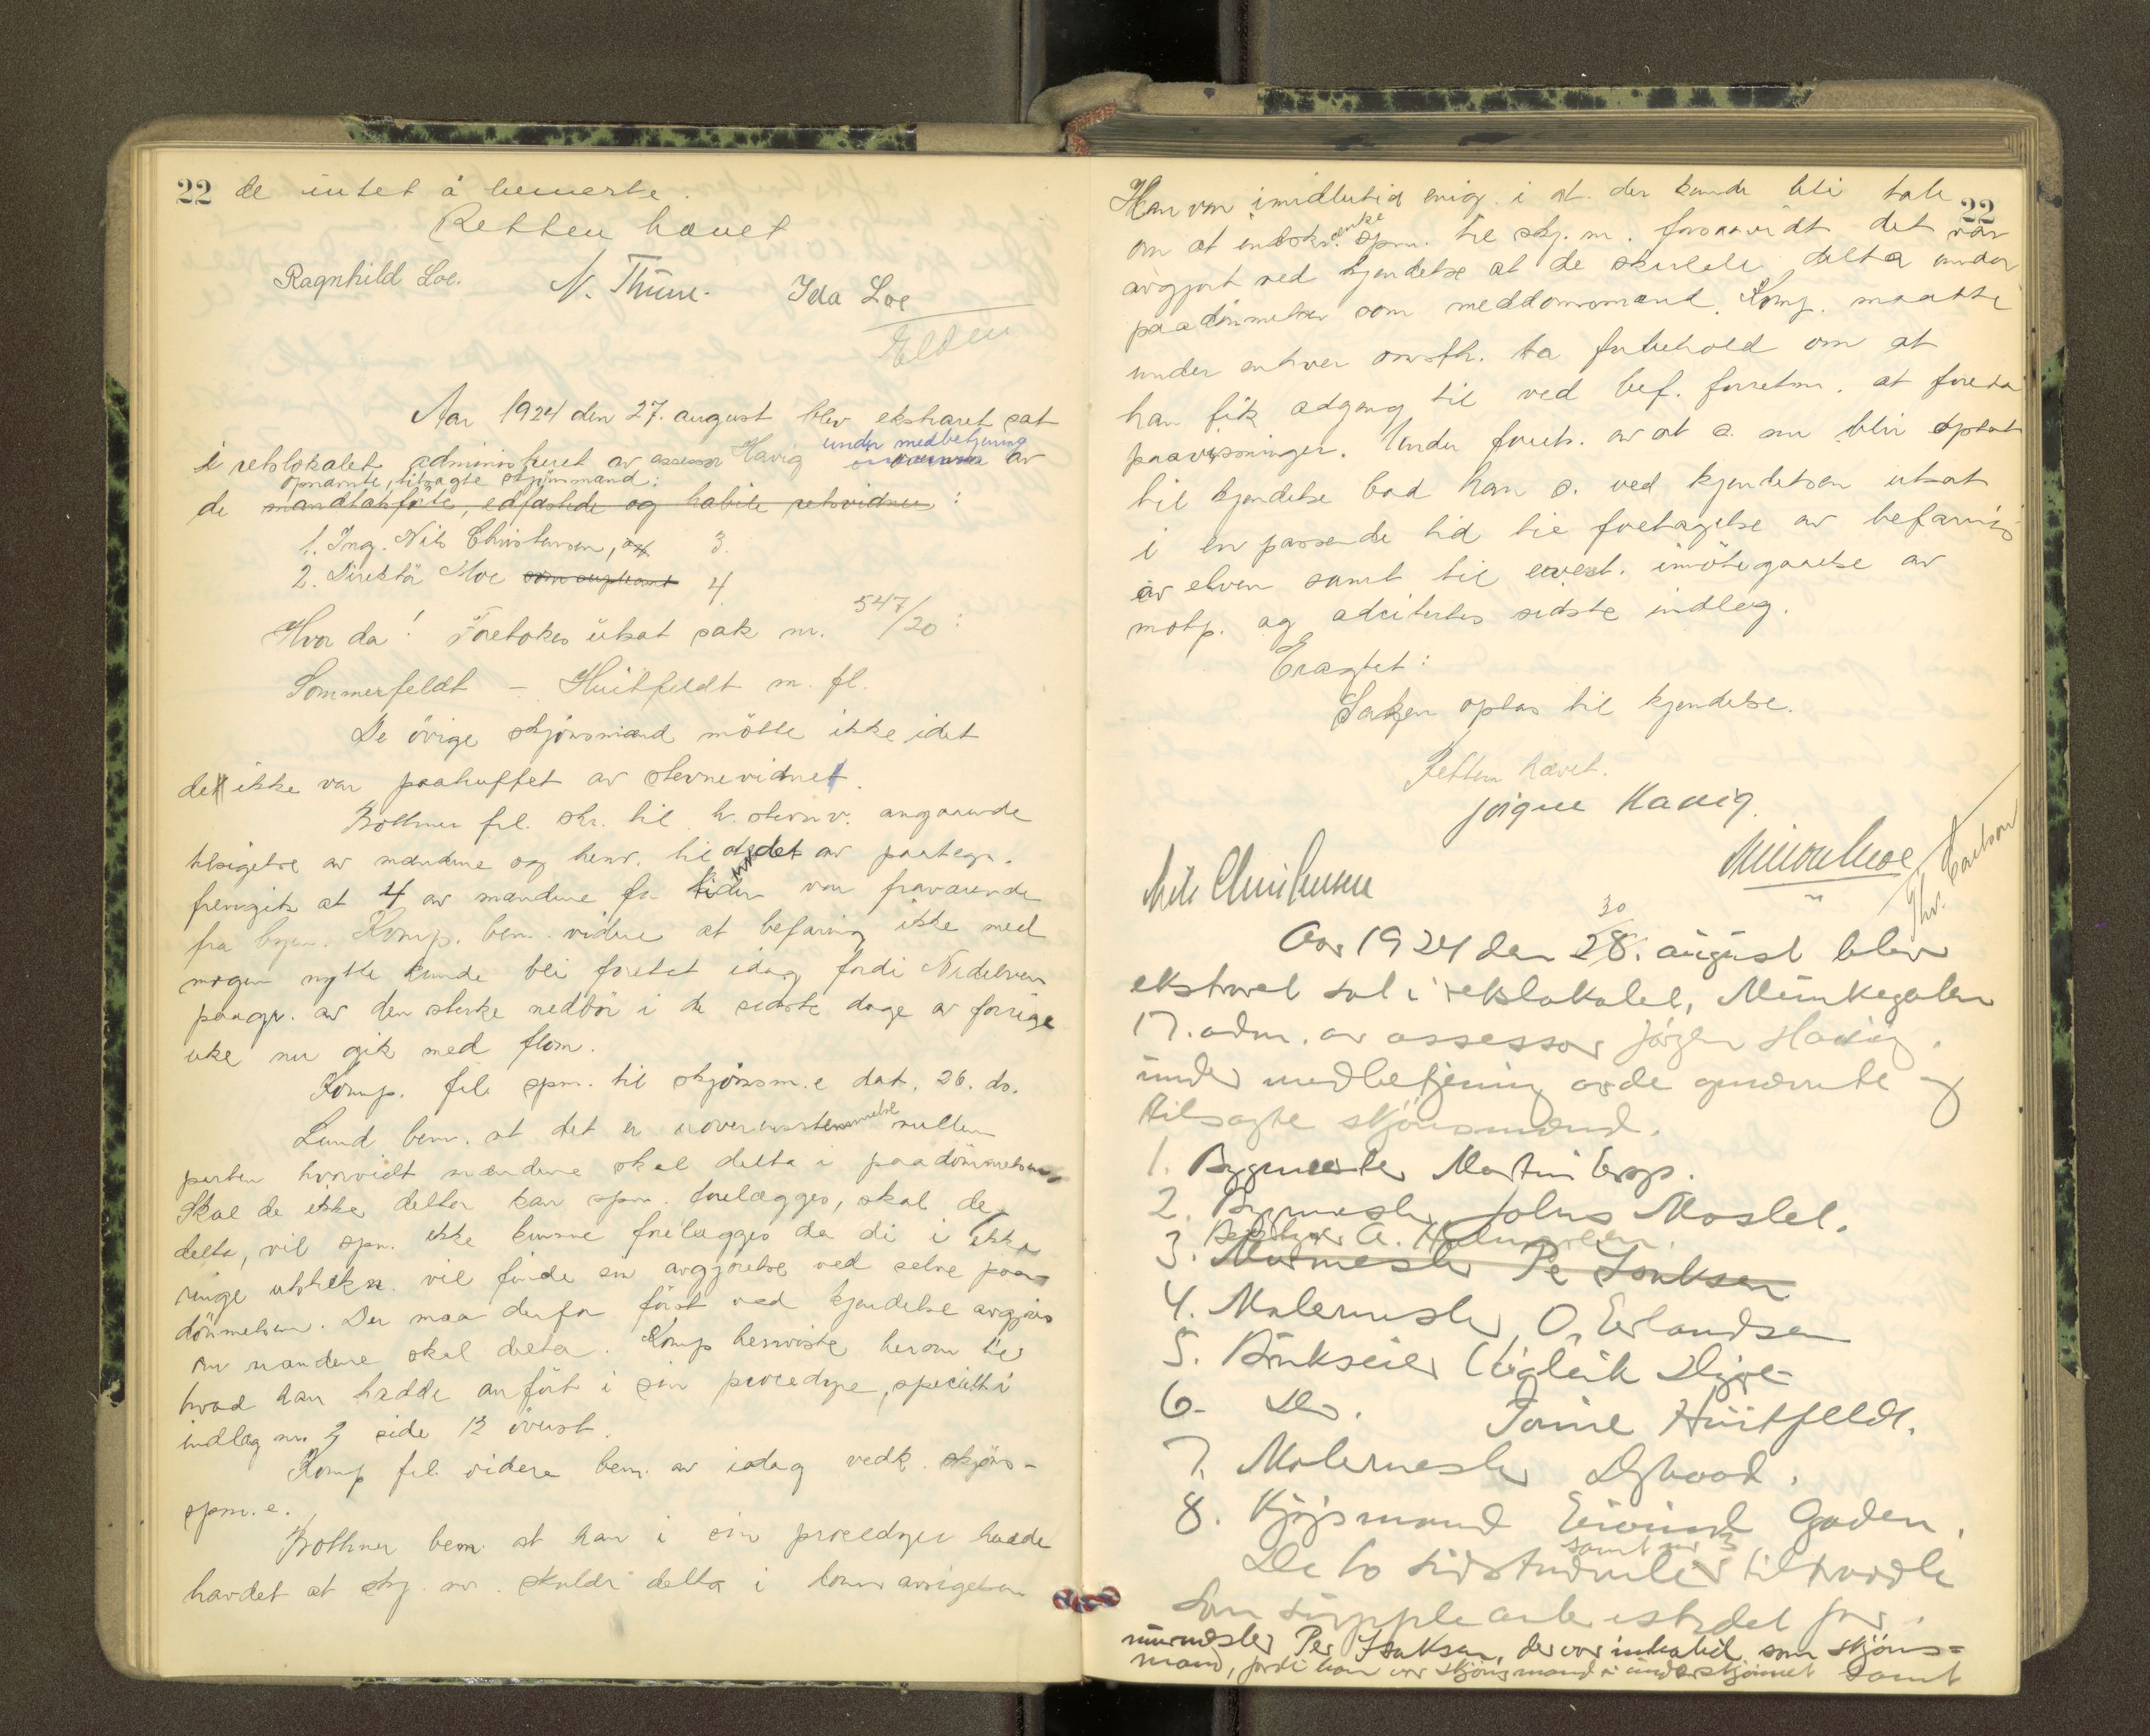 22 de intet å bemerke.
Retten hævet
Ragnhild Loe. N. Thüne. Ida Loe
Elden
Aar 1924 den 27. august blev ekstraret sat
i retslokalet administreret av assessor Havig under medbetjening av
opnævnte, tilsagte skjönsmænd:
de mandtalsförte, edfæstede og habile retsvidner :
1. Ing. Nils Christensen, 3.
2. Direktör Moe som suppleant 4.
Hvor da! Foretokes utsat sak nr. 547/20:
Sommerfeldt – Huitfeldt m. fl.
De övrige skjönsmænd mötte ikke idet
det ikke var paaheftet av stevnevidnet.
Bothner frl. skr. til h. stevnv. angaaende
tilsigelse av mændene og henv. til at det av paategn.
fremgik at 4 av mændene for tiden var fraværende
fra byen. Komp. bem. videre at befaring ikke med
nogen nytte kunde bli foretat idag fordi Nidelven
paagr. av den sterke nedbör i de sidste dage av forrige
uke nu gik med flom.
Komp. frl. spm. til skjönsm.e dat. 26. ds.
Lund bem. at det er uoverensstemmelse mellem
parten hvorvidt mændene skal delta i paadömmelsen
Skal de ikke delta kan spm. forelægges, skal de
delta, vil spm. ikke kunne forelægges da di i ikke
ringe utstrekn. vil finde sin avgjörelse ved selve paa-
dömmelsen. Der maa derfor först ved kjendelse avgjöres
om mændene skal delta. Komp henviste herom til
hvad han hadde anfört i sin procedyre, specielt i
indlæg nr. 3 side 12 överst.
Komp frl. videre bem. av idag vedk. skjöns-
spm.e.
Bothner bem. at han i sin procedyre hadde
hævdet at skj. m. skulde delta i domsavsigelsen
22
Han var imidlertid enig i at der kunde bli tale
om at indskrænke spm. til skj. m. forsaavidt det var
avgjort ved kjendelse at de skulde delta under
paadömmelsen som meddomsmænd. Komp. maatte
under enhver omsth. ta forbehold om at
han fik adgang til ved bef. forretn. at foreta
paavisninger. Under foruts. av at s. nu blir optat
til kjendelse bad han s. ved kjendelsen utsat
i en passende tid til foretagelse av befaring
av elven samt til event. imötegaaelse av
motp. og adcitertes sidste indlæg.
Eragtet:
Saken optas til kjendelse.
Retten hævet.
Jörgen Havig.
Nils Christensen Simon Moe Thv. Carlson
30
Aar 1924 den 28. august blev
ekstraret sat i retslokalet, Munkegaten
17. adm. av assessor Jörgen Havig.
under medbetjening av de opnævnte og
tilsagte skjönsmænd.
1. Bygmester Martin Gropp.
2. Bygmester Johns Moslet.
A. Holmgreen.
3. Murmester Per Isaksen
4. Malermester O. Erlandsen
5. Brukseier Digre
6. Do. Tönne Huitfeldt.
7. Malermester Dybvad.
8. Kjöpmand Eivind Gaden.
samt nr 3
De to sidstnævnte tiltraadte
som suppleanter istedet for
murmester Per Isaksen, der var inhabil som skjöns-
mand, fordi han var skjönsmand i underskjönnet samt